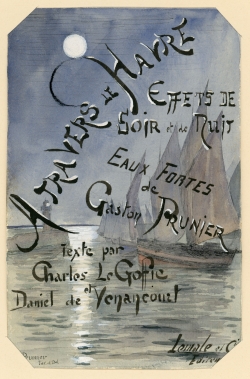 A TRAVERS LE HAVRE
EFFETS DE
Soir et de Nuit
EAUX FORTES
de
Gaston PRUNIER
Texte par
Charles Le Goffic
et
Daniel de Venancourt